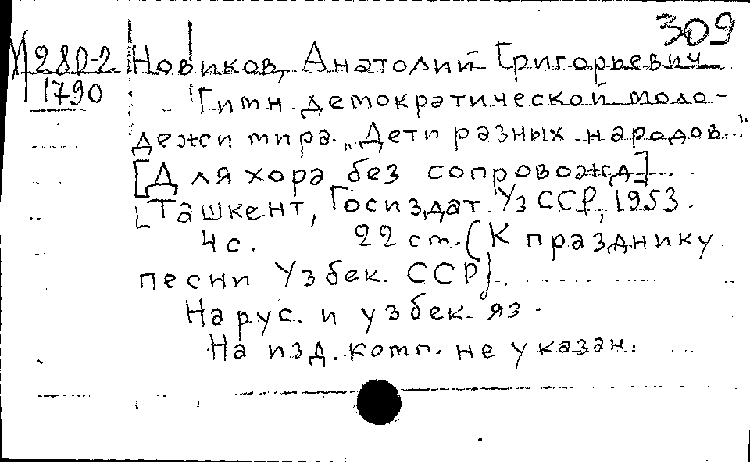 309
М 280-2 Новиков, Анатолий Григорьевич
1790 Гимн демократической моло-
дежи мира. „Дети разных народов..."
[Для хора без сопровожд.]
Ташкент, Госиздат УзССР, 1953.
4 с. 22 см. (К празднику
песни Узбек. ССР)
На рус. и узбек. яз.
На изд. комп. не указан.